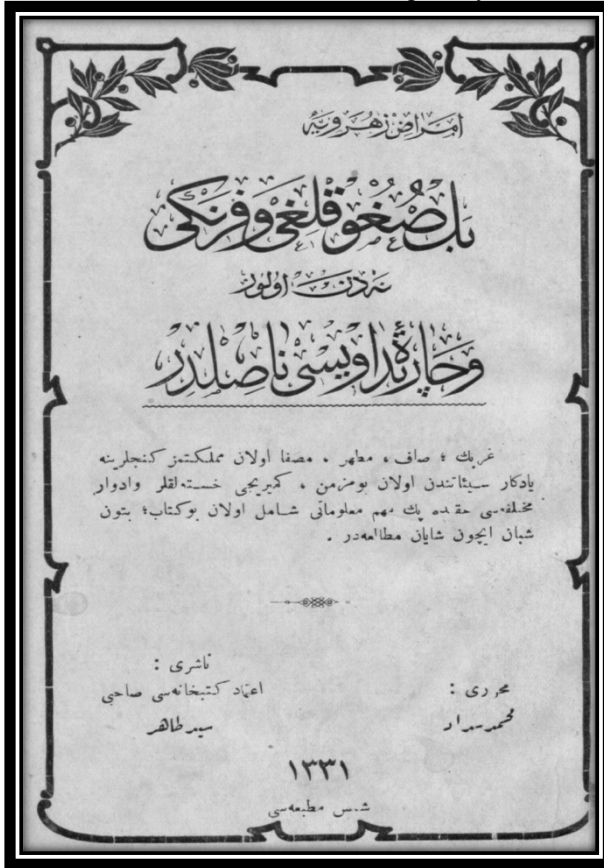 امراض زهرویه
بل صغوقلغی و فرنكی
نه‌دن اولور
و چارهٔ تداویسی ناصلدر
غربك ؛ صاف ، مطهر ، مصفا اولان مملكتمز كنجلرینه
یادكار سیئاتندن اولان بو مزمن ، كمیریجی خسته‌لقلر وادوار
مختلفه‌سی حقنده پك مهم معلوماتی شامل اولان بوكتاب؛ بتون
شبان ایچون شایان مطالعه‌در .
ناشری :
اعتماد كتبخانه‌سی صاحبی
سید طاهر
محرری :
محمد سداد
١٣٣١
شمس مطبعه‌سی